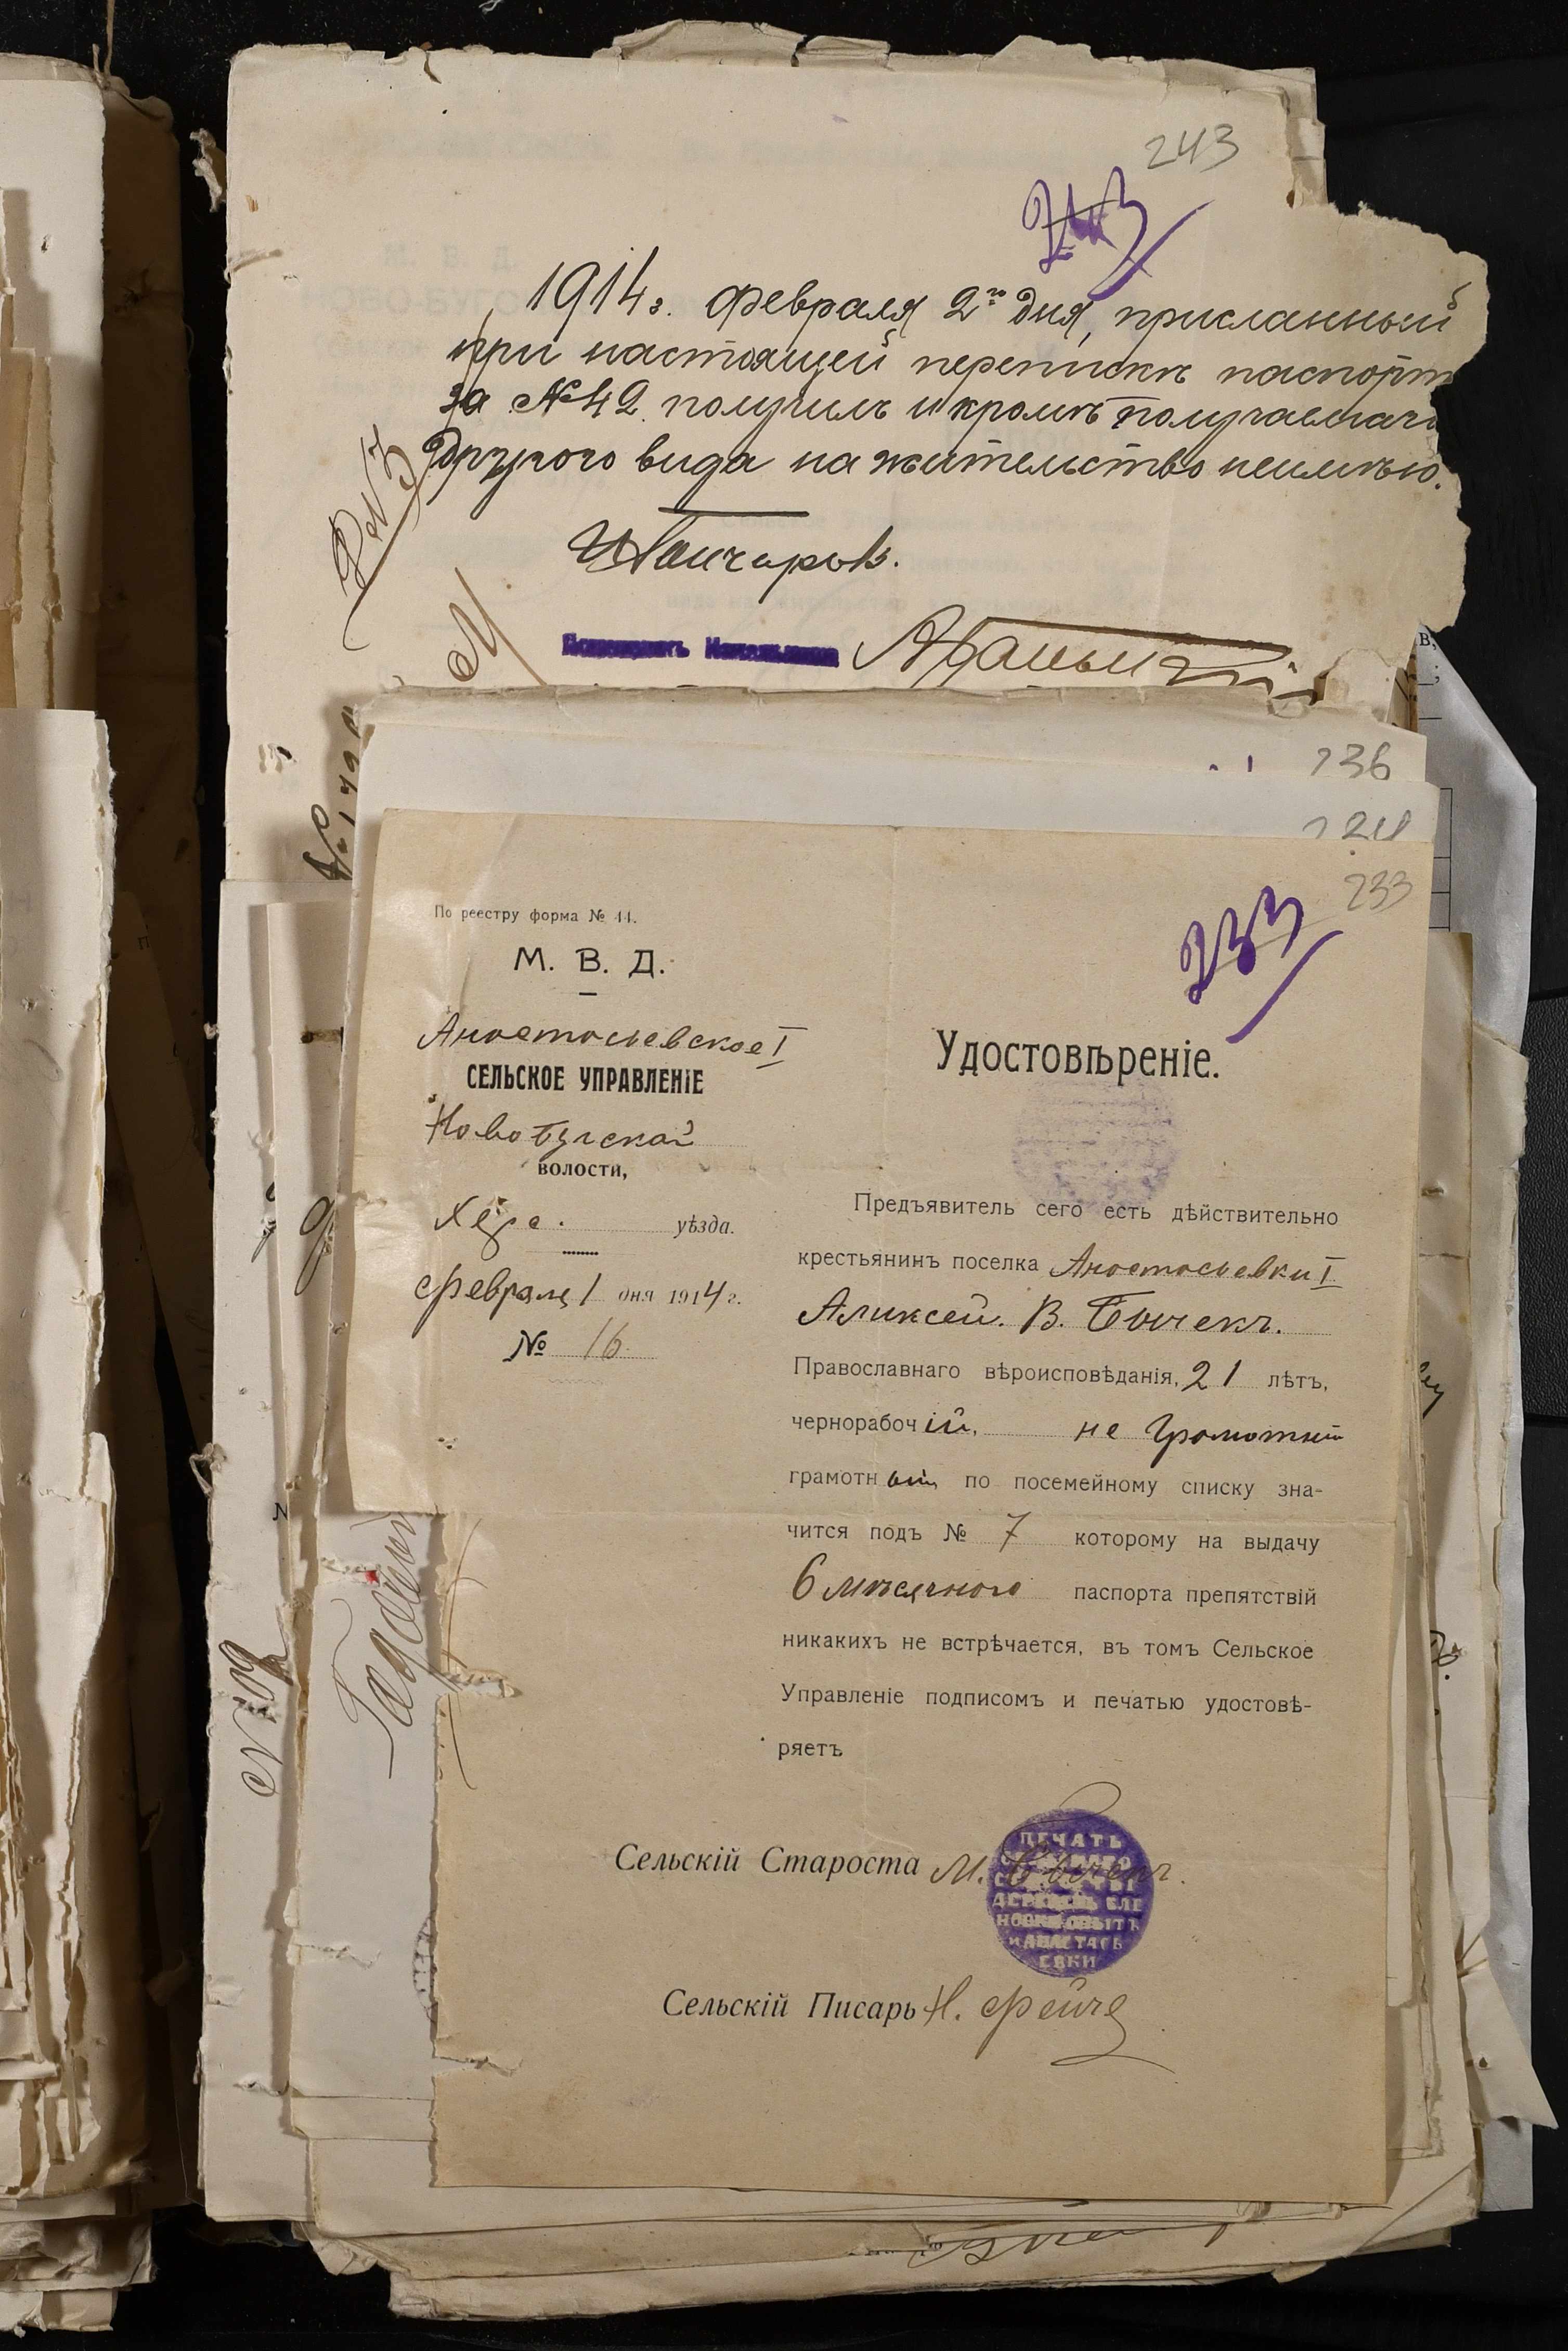 243
243
1914 г. Февраля 2го дня, присланный
при настоящей перепискѣ паспортъ
за № 42 получилъ и кромѣ
другого вида на жительство неимѣю.
236
233
233
По реестру форма № 11.
М. В. Д.
Анастасьевское I
СЕЛЬСКОЕ УПРАВЛЕНІЕ
Новобугской
волости,
Херс. уѣзда.
Февраля 1 дня 1914 г.
№ 16
Удостовѣреніе.
Предъявитель сего есть дѣйствительно
крестьянинъ поселка Анастасьевки I
Аликсей. В. Бычекъ.
Православнаго вѣроисповѣданія, 21 лѣтъ,
чернорабочій, не грамотный
грамотный по посемейному списку зна-
чится подъ № 7 которому на выдачу
6 мѣсячного паспорта препятствій
никакихъ не встрѣчается, въ томъ Сельское
Управленіе подписомъ и печатью удостовѣ-
ряетъ
Сельскій Староста М. Бычекъ.
ПЕЧАТЬ
И АНАСТАСЬ
ЕВКИ
Сельскій Писарь Н.